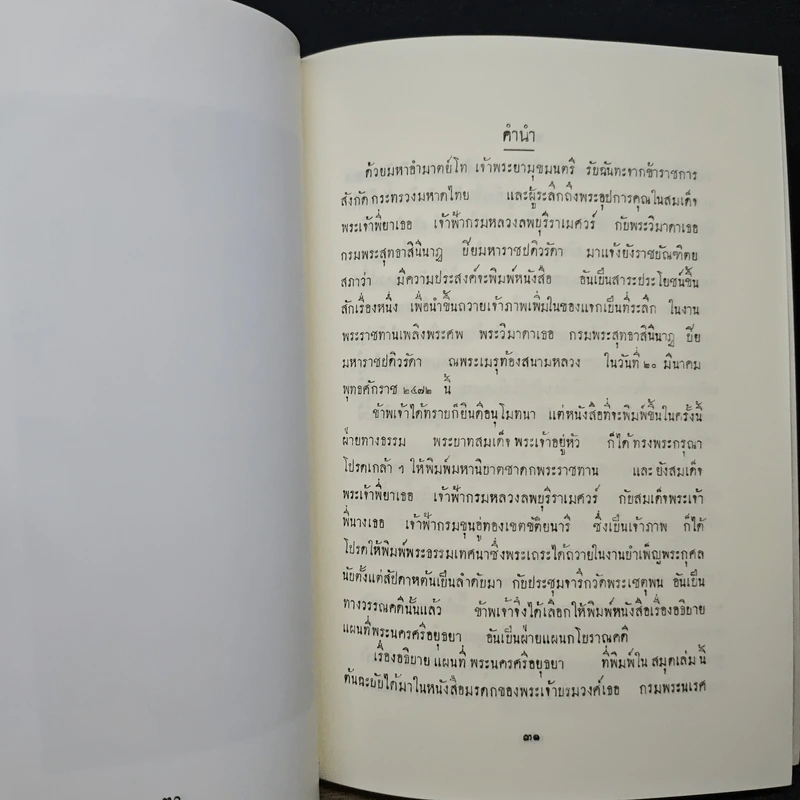 คำนำ
ด้วยมหาอำมาตย์โท เจ้าพระยามุขมนตรี รับฉันทะจากข้าราชการ
สังกัด กระทรวงมหาดไทย และผู้ระลึกถึงพระอุปการคุณในสมเด็จ
พระเจ้าพี่ยาเธอ เจ้าฟ้ากรมหลวงลพบุรีราเมศวร์ กับพระวิมาดาเธอ
กรมพระสุทธาสินีนาฏ ปิยมหาราชปดิวรัดา มาแจ้งยังราชบัณฑิตย
สภาว่า มีความประสงค์จะพิมพ์หนังสือ อันเป็นสาระประโยชน์ขึ้น
สักเรื่องหนึ่ง เพื่อนำขึ้นถวายเจ้าภาพเพิ่มในของแจกเป็นที่ระลึก ในงาน
พระราชทานเพลิงพระศพ พระวิมาดาเธอ กรมพระสุทธาสินีนาฏ ปิย
มหาราชปดิวรัดา ณพระเมรุท้องสนามหลวง ในวันที่ ๒๐ มีนาคม
พุทธศักราช ๒๔๗๒ นี้
ข้าพเจ้าได้ทราบก็ยินดีอนุโมทนา แต่หนังสือที่จะพิมพ์ขึ้นในครั้งนี้
ฝ่ายทางธรรม พระบาทสมเด็จ พระเจ้าอยู่หัว ก็ได้ทรงพระกรุณา
โปรดเกล้า ฯ ให้พิมพ์มหานิบาตชาดกพระราชทาน และ ยังสมเด็จ
พระเจ้าพี่ยาเธอ เจ้าฟ้ากรมหลวงลพบุรีราเมศวร์ กับสมเด็จพระเจ้า
พี่นางเธอ เจ้าฟ้ากรมขุนอู่ทองเขตขัติยนารี ซึ่งเป็นเจ้าภาพ ก็ได้
โปรดให้พิมพ์พระธรรมเทศนาซึ่งพระเถระได้ถวายในงานบำเพ็ญพระกุศล
นับตั้งแต่สัปดาหต้นเป็นลำดับมา กับประชุมจารึกวัดพระเชตุพน อันเป็น
ทางวรรณคดีนั้นแล้ว ข้าพเจ้าจึงได้เลือกให้พิมพ์หนังสือเรื่องอธิบาย
แผนที่พระนครศรีอยุธยา อันเป็นฝ่ายแผนกโบราณคดี
เรื่องอธิบาย แผนที่ พระนครศรีอยุธยา ที่พิมพ์ใน สมุดเล่มนี้
ต้นฉะบับได้มาในหนังสือมรดกของพระเจ้าบรมวงศ์เธอ กรมพระนเรศ
๓๑